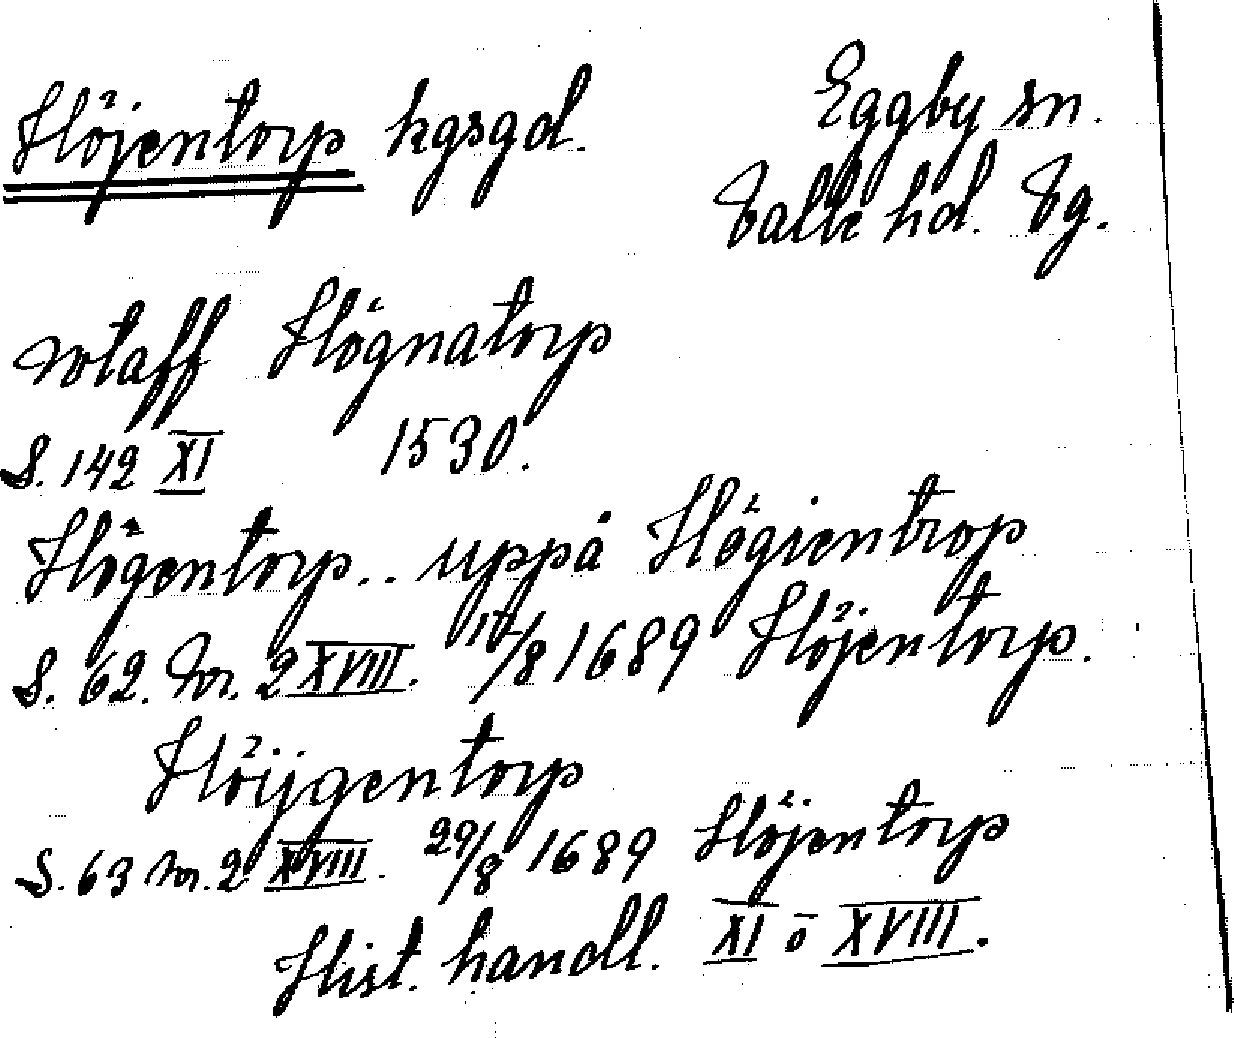 Höjentorp kgsgd. Eggby sn.
Valle hd. Vg.
wtaff Högnatorp
S. 142 XI 1530.
Högentorp.. uppå Högientrop
S. 62. Nr. 2 XVIII. /8 1689 Höjentorp.
Höijgentorp
S. 63 Nr. 2 XVIII. 29/8 1689 Höjentorp
Hist. handl. XI o XVIII.